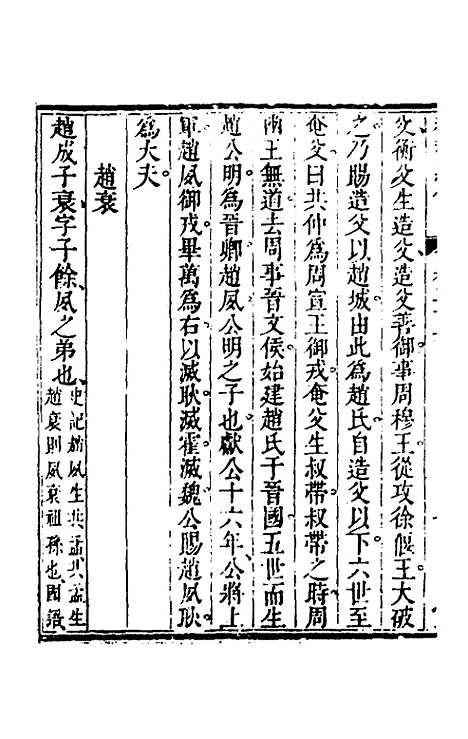 父衡父生造父造父善御事周穆王從攻徐偃王大破
之乃賜造父以趙城由此為趙氏自造父以下六世至
奄父曰共仲為周宣王御戎奄父生叔帶叔帶之時周
幽王無道去周事晉文侯始建趙氏于晉國五世而生
趙公明為晉卿趙夙公明之子也獻公十六年公將上
軍趙夙御戎畢萬為右以滅耿滅霍滅魏公賜趙夙耿
為大夫
趙衰
趙成子衰字子餘夙之弟也
史記趙夙生共孟共孟生
趙衰則夙衰祖孫也國語